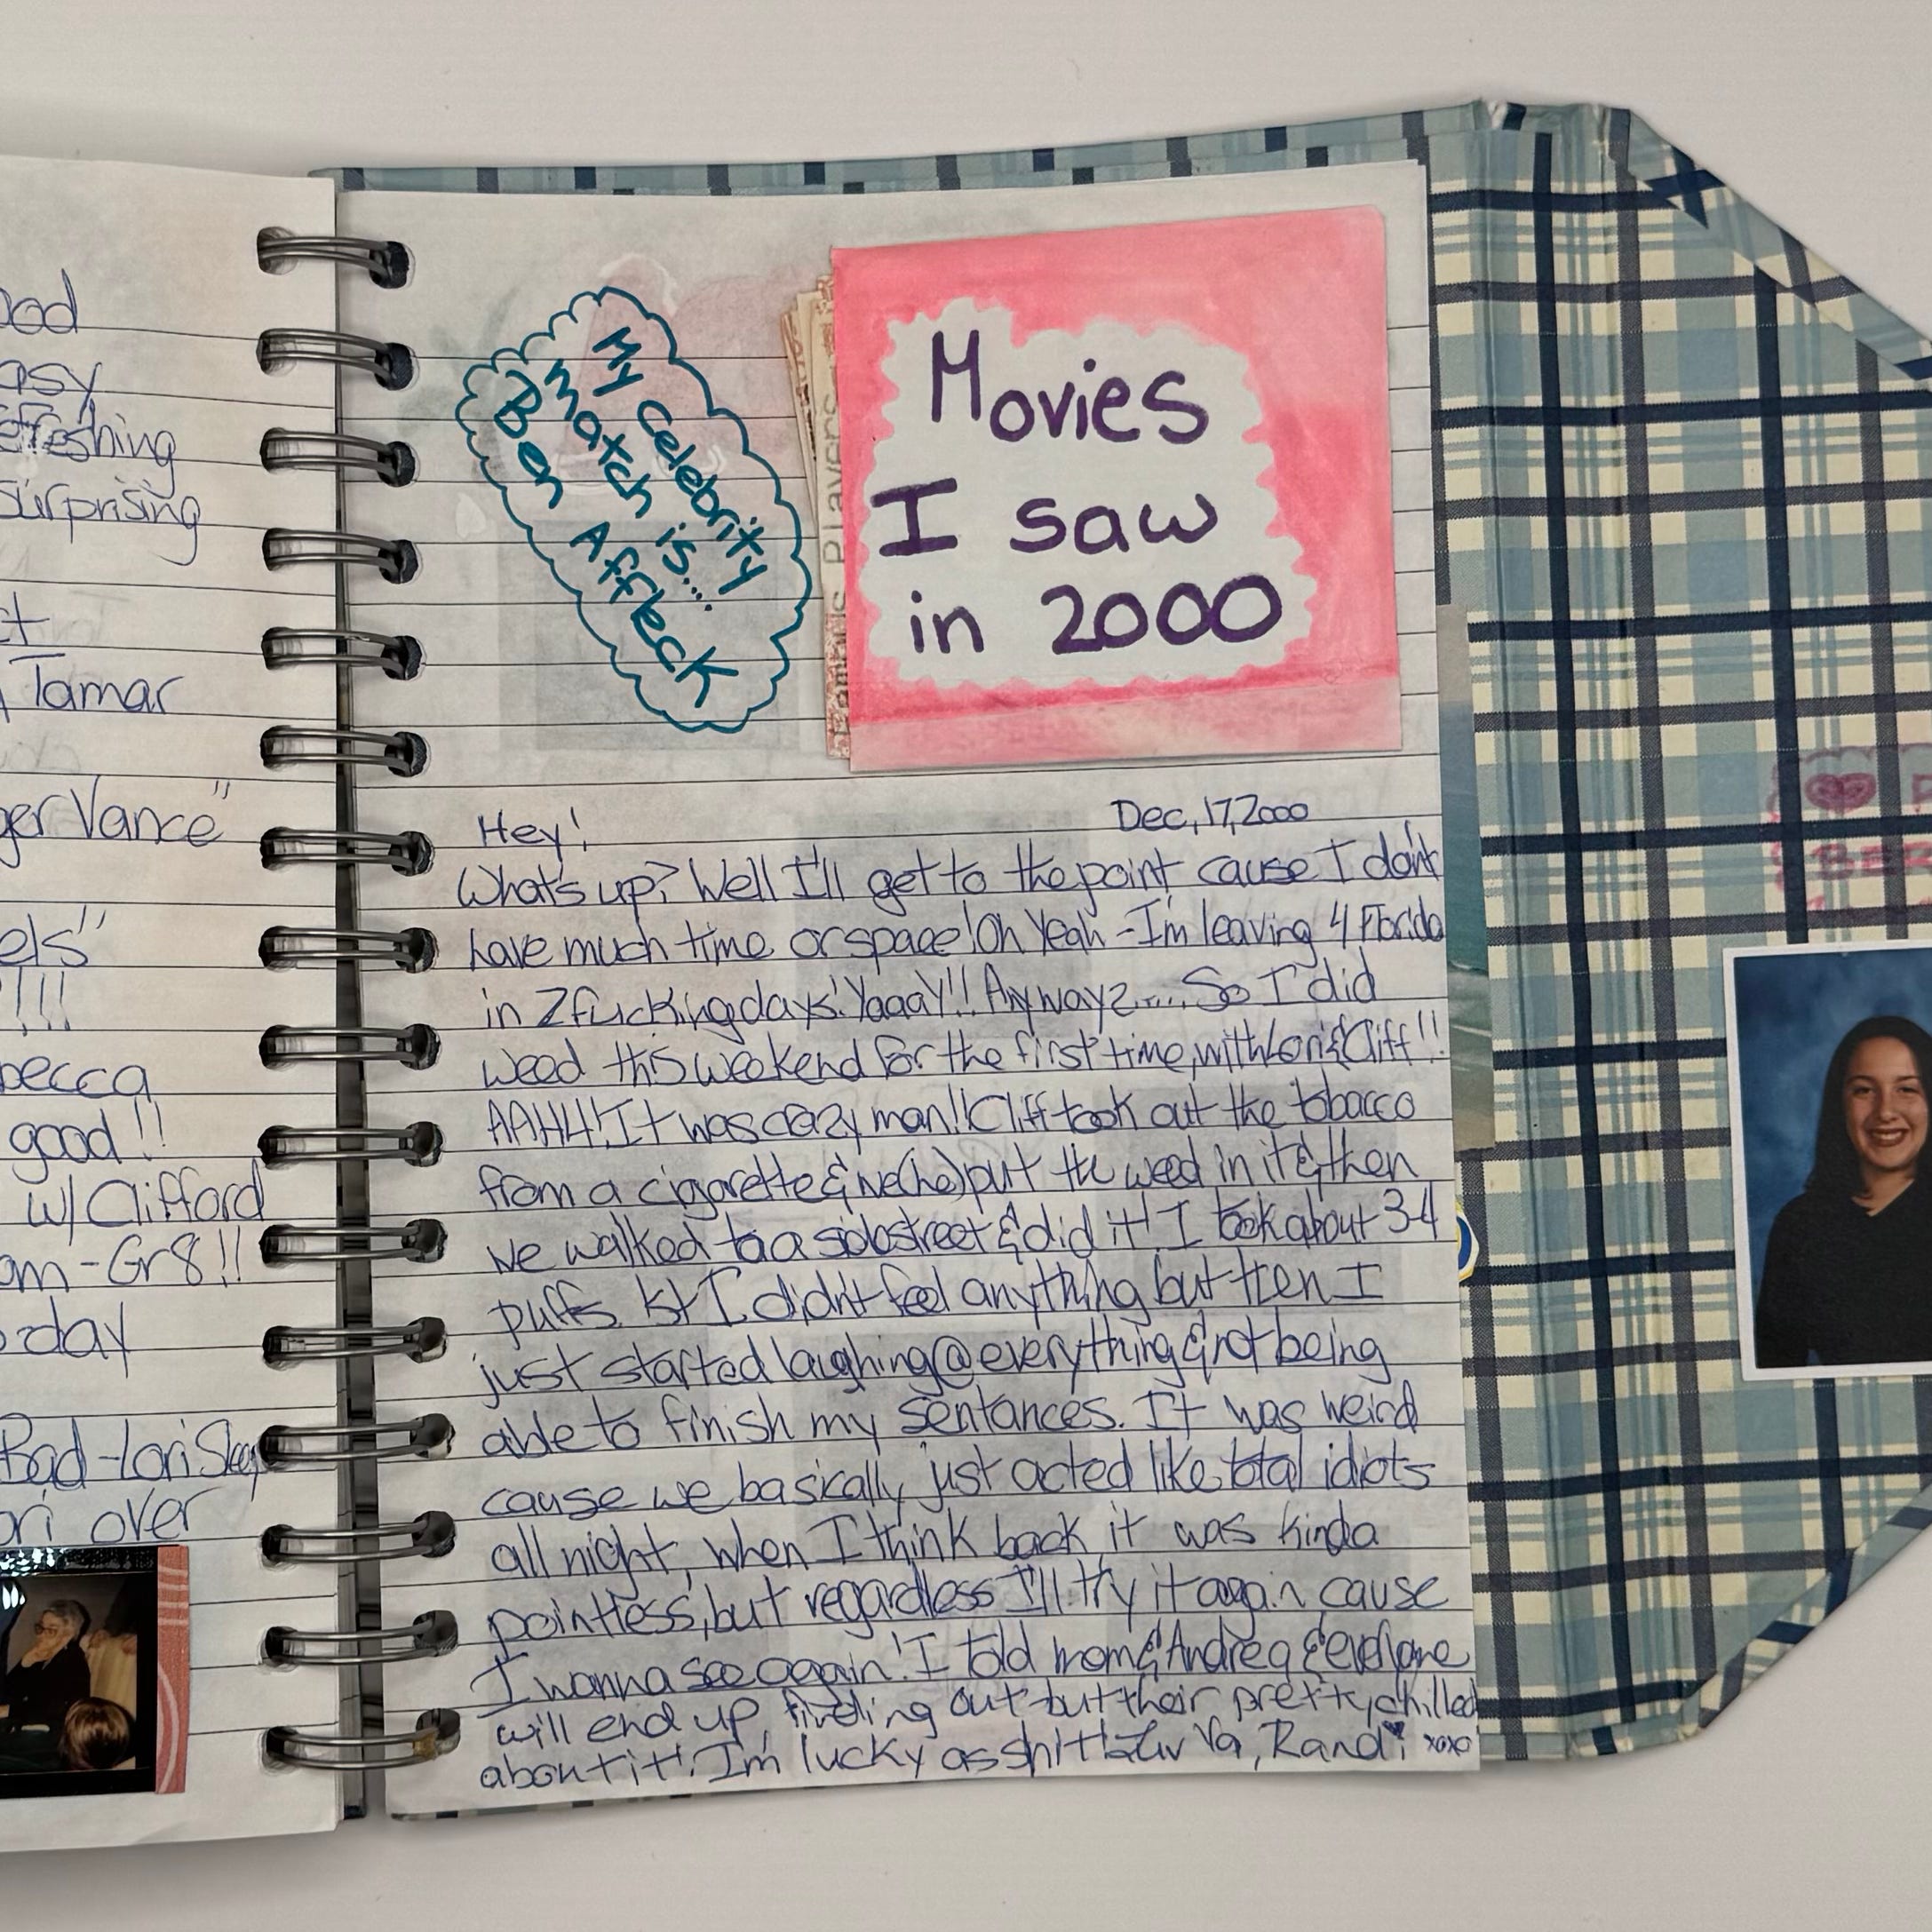 ood
asy
efreshing
surprising
ct
Tamar
ger Vance"
els"
!!!
becca
good!!
w/ Clifford
om-Gr8!!
day
Bad-Lori Sleep
ori over
My Celebrity
match is....
Ben Affleck
Players
Movies
I saw
in 2000
Dec, 17, 2000
Hey!
What's up? Well I'll get to the point cause I don't
have much time or space! Oh Yeah - I'm leaving 4 Florida
in 2 fucking days! Yaaay!! Anywayz..... So I did
weed this weekend for the first time, with Lori & Cliff!!
AAHH! It was crazy man!! Cliff took out the tobacco
from a cigarette & we (he) put the weed in it & then
we walked to a sidestreet & did it! I took about 3-4
puffs. 1st I didn't feel anything but then I
just started laughing @ everything & not being
able to finish my sentances. It was weird
cause we basically just acted like total idiots
all night, when I think back it was kinda
pointless, but regardless I'll try it again cause
I wanna see again! I told mom & Andrea & everyone
will end up finding out but their pretty chilled
about it! I'm lucky as shit! Luv Ya, Randi xoxo
BE